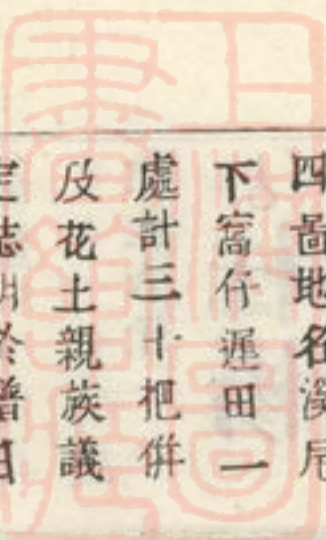 四啚地名溪尾
下窩仔遲田一
處計三十把併
及花土親族議
定誌明於譜日